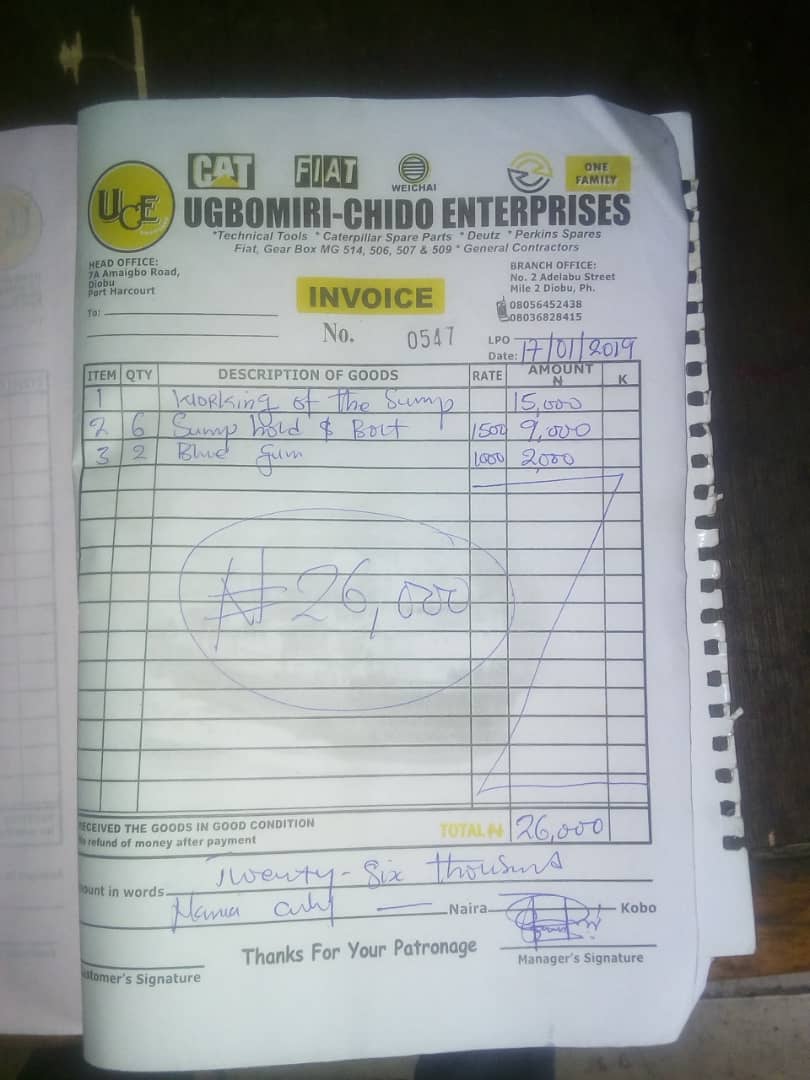 CAT FIAT WEICHAI ONE FAMILY
UCE UGBOMIRI-CHIDO ENTERPRISES
*Technical Tools *Caterpillar Spare Parts *Deutz *Perkins Spares
Fiat, Gear Box MG 514, 506, 507 & 509 * General Contractors
HEAD OFFICE:
7A Amaigbo Road,
Diobu
Port Harcourt
BRANCH OFFICE:
No. 2 Adelabu Street
Mile 2 Diobu, Ph.
08056452438
08036828415
INVOICE
To:
No. 0547
LPO
Date: 17/01/2019
ITEM QTY DESCRIPTION OF GOODS RATE AMOUNT N K
1 Working of the Sump 15,000
2 6 Sump hold & Bolt 1500 9,000
3 2 Blue gum 1000 2,000
₦26,000
RECEIVED THE GOODS IN GOOD CONDITION
refund of money after payment
TOTAL ₦ 26,000
Twenty-Six thousand
in words
Naira only Naira Kobo
Thanks For Your Patronage
Manager's Signature
Signature